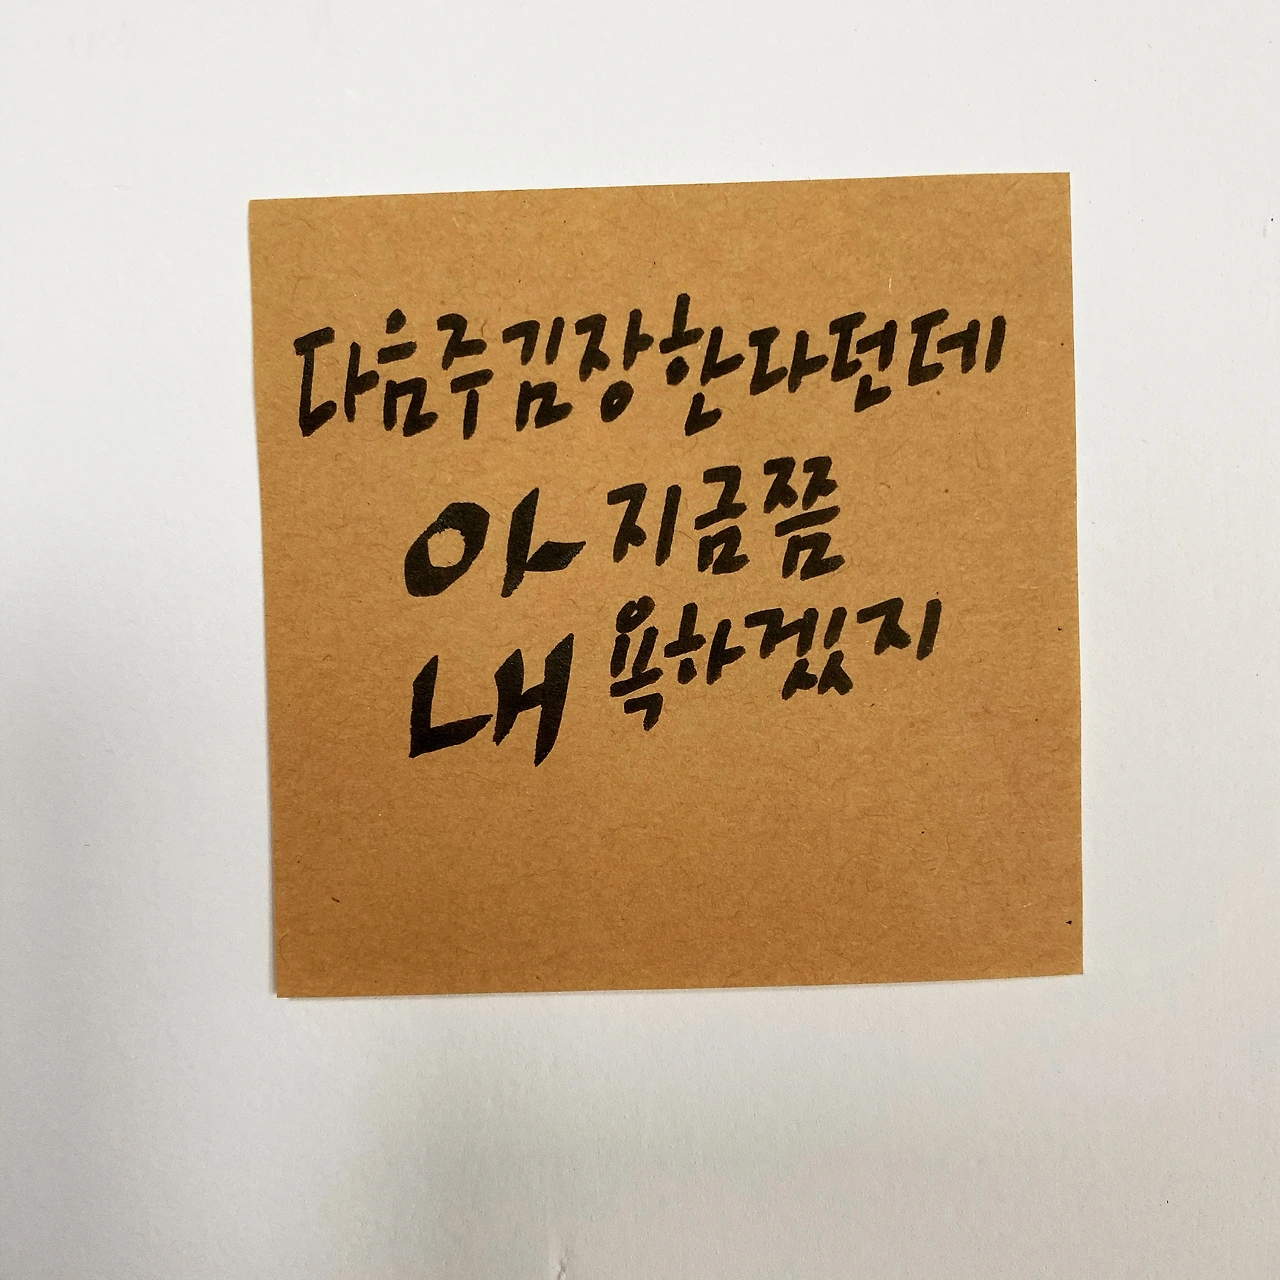 다음주김장한다던데
아 지금쯤
내 욕하겠지